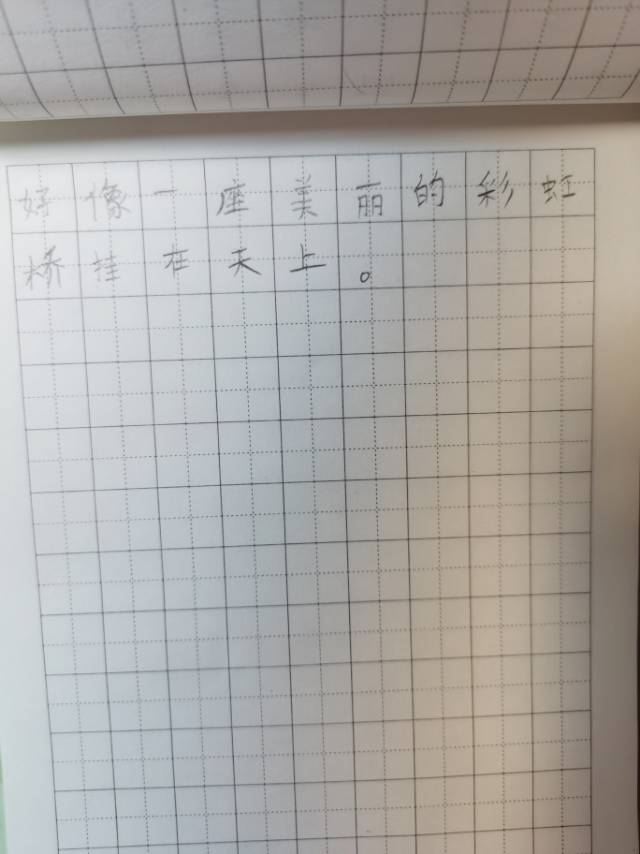 好像一座美丽的彩虹
桥挂在天上。